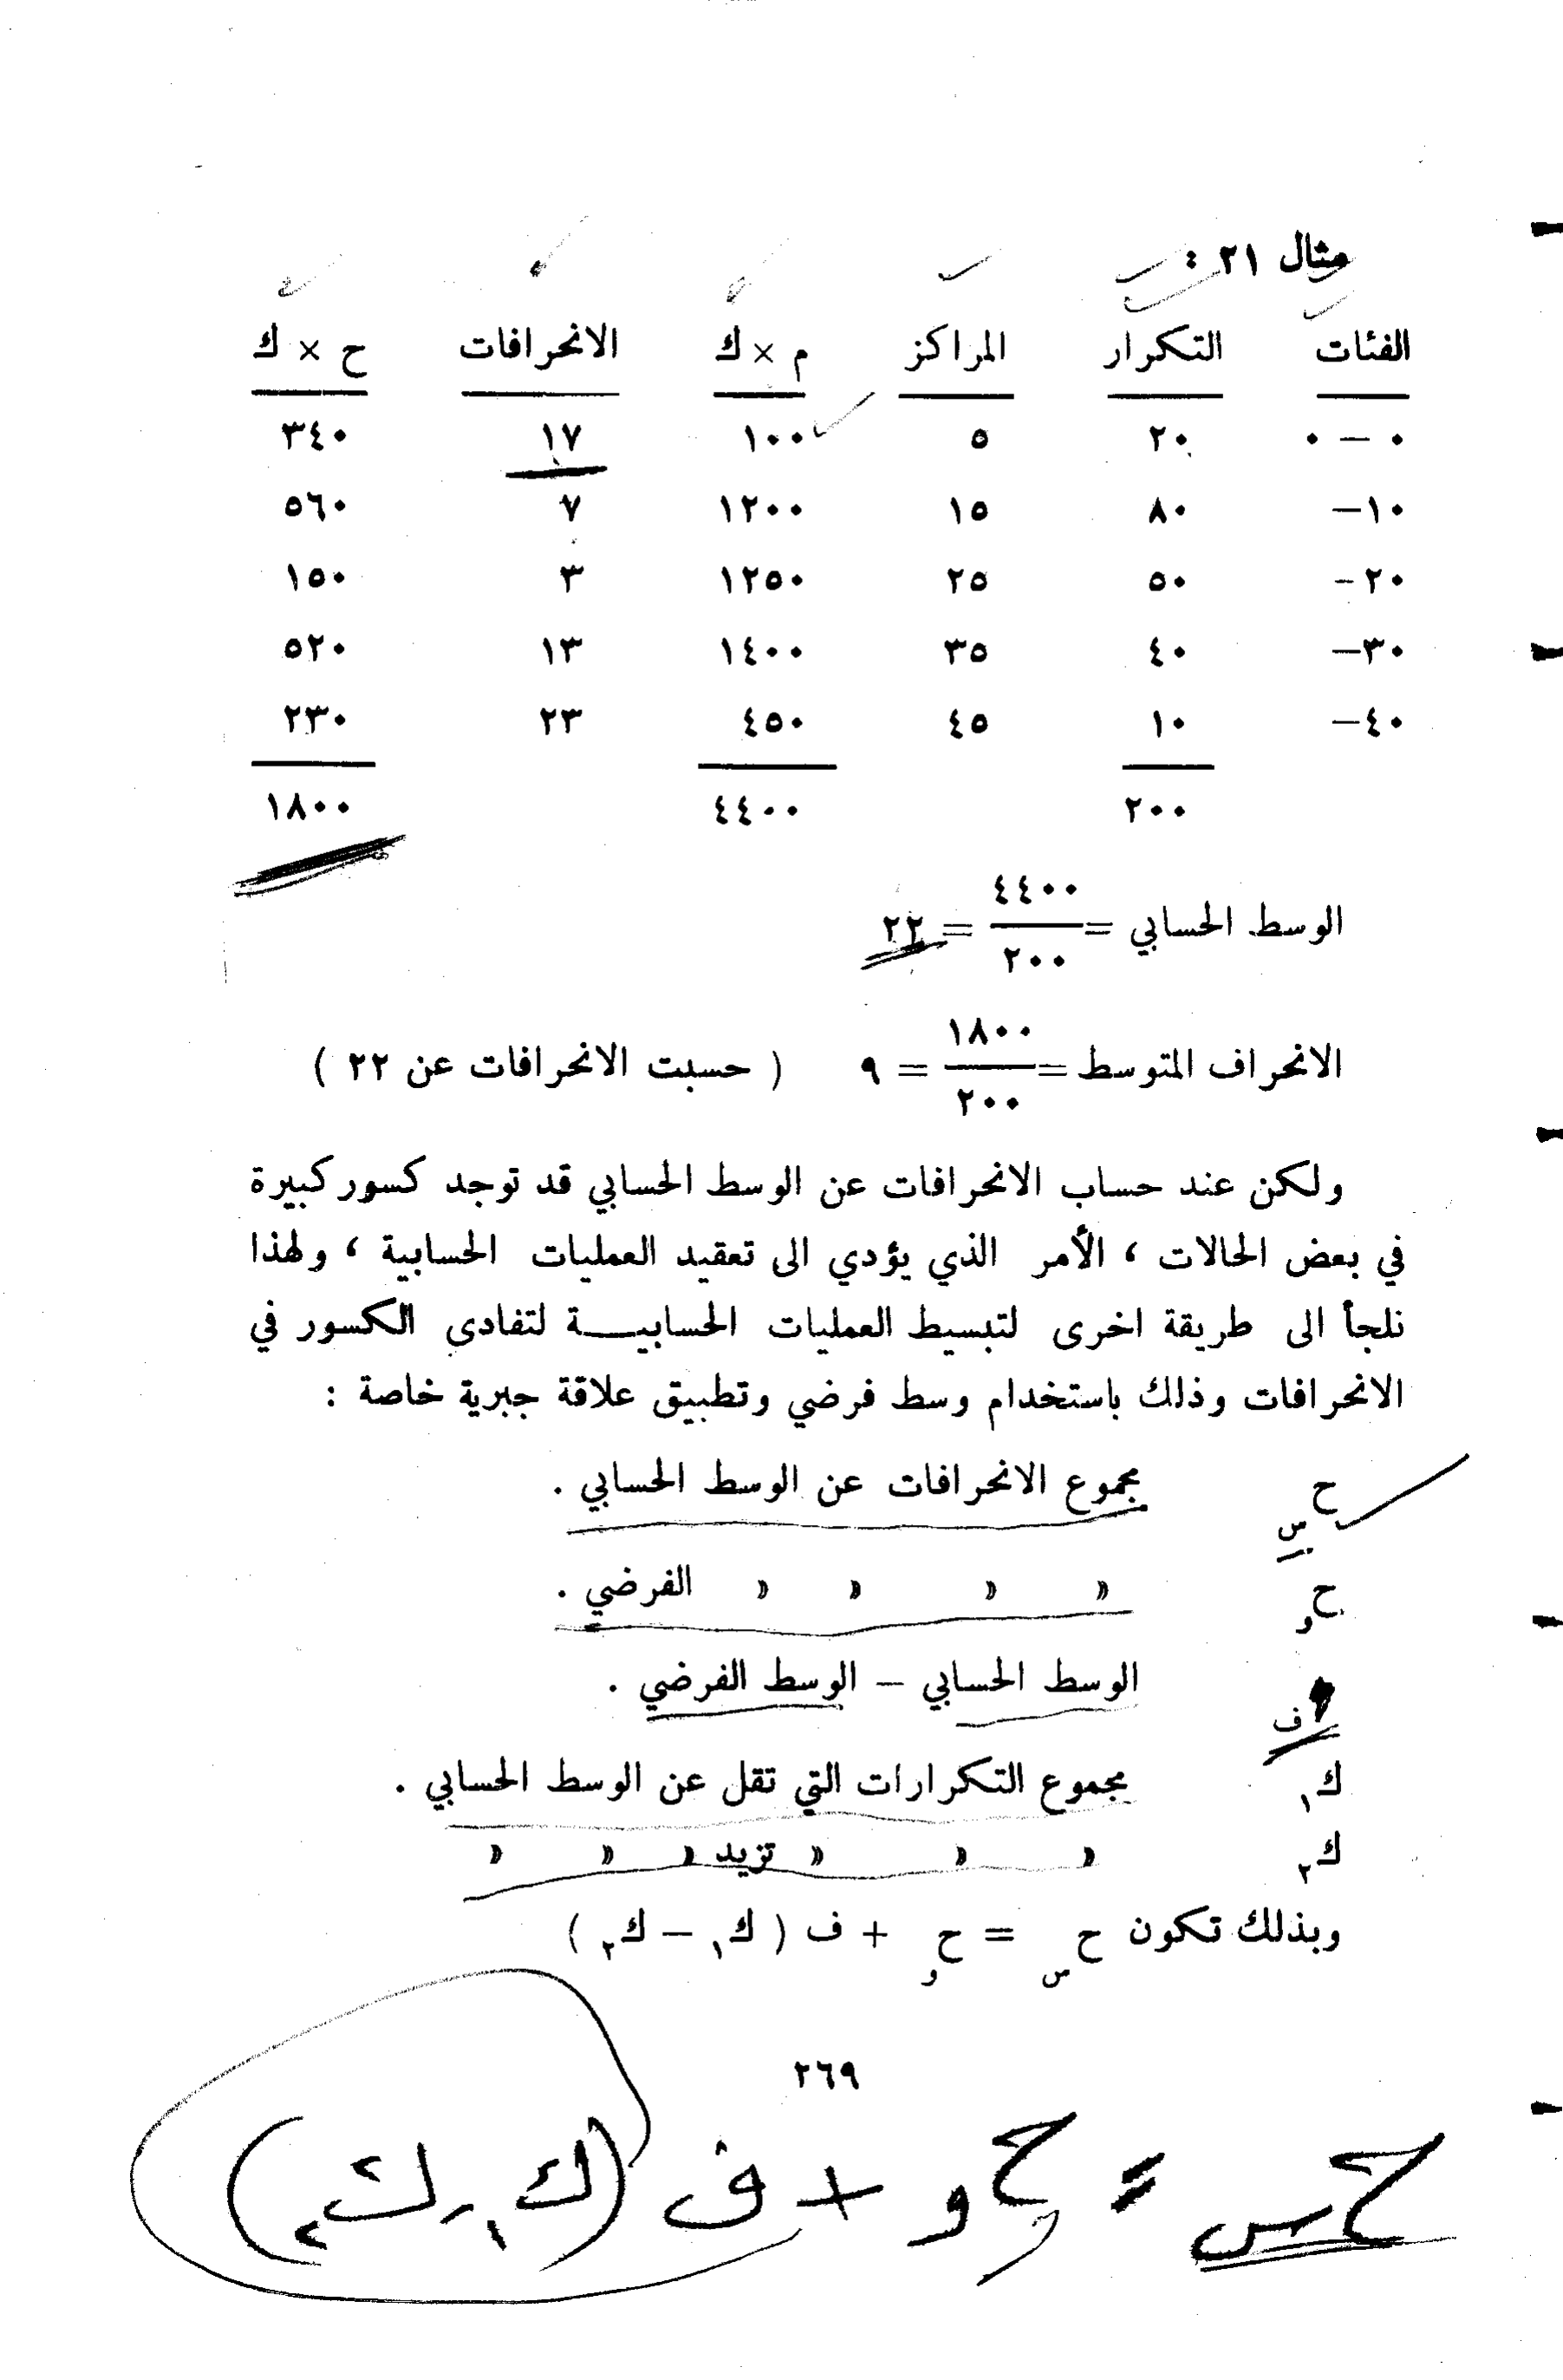 مثال ٢١ :
الفئات التكرار المراكز م × ك الانحرافات ح × ك
٠ — ٠ ٢٠ ٥ ١٠٠ ١٧ ٣٤٠
١٠— ٨٠ ١٥ ١٢٠٠ ٧ ٥٦٠
٢٠- ٥٠ ٢٥ ١٢٥٠ ٣ ١٥٠
٣٠— ٤٠ ٣٥ ١٤٠٠ ١٣ ٥٢٠
٤٠— ١٠ ٤٥ ٤٥٠ ٢٣ ٢٣٠
٢٠٠ ٤٤٠٠ ١٨٠٠
الوسط الحسابي = ٤٤٠٠ / ٢٠٠ = ٢٢
الانحراف المتوسط = ١٨٠٠ / ٢٠٠ = ٩ ( حسبت الانحرافات عن ٢٢ )
ولكن عند حساب الانحرافات عن الوسط الحسابي قد توجد كسور كبيرة
في بعض الحالات ، الأمر الذي يؤدي الى تعقيد العمليات الحسابية ، ولهذا
نلجأ الى طريقة اخرى لتبسيط العمليات الحسابيــة لتفادى الكسور في
الانحرافات وذلك باستخدام وسط فرضي وتطبيق علاقة جبرية خاصة :
ح س مجموع الانحرافات عن الوسط الحسابي .
ح و » » » » الفرضي .
ف الوسط الحسابي – الوسط الفرضي .
ك ١ مجموع التكرارات التي تقل عن الوسط الحسابي .
ك ٢ » » » تزيد » » »
وبذلك تكون ح س = ح و + ف ( ك ١ – ك ٢ )
٢٦٩
ح س = ح و + ف (ك ١ - ك ٢)